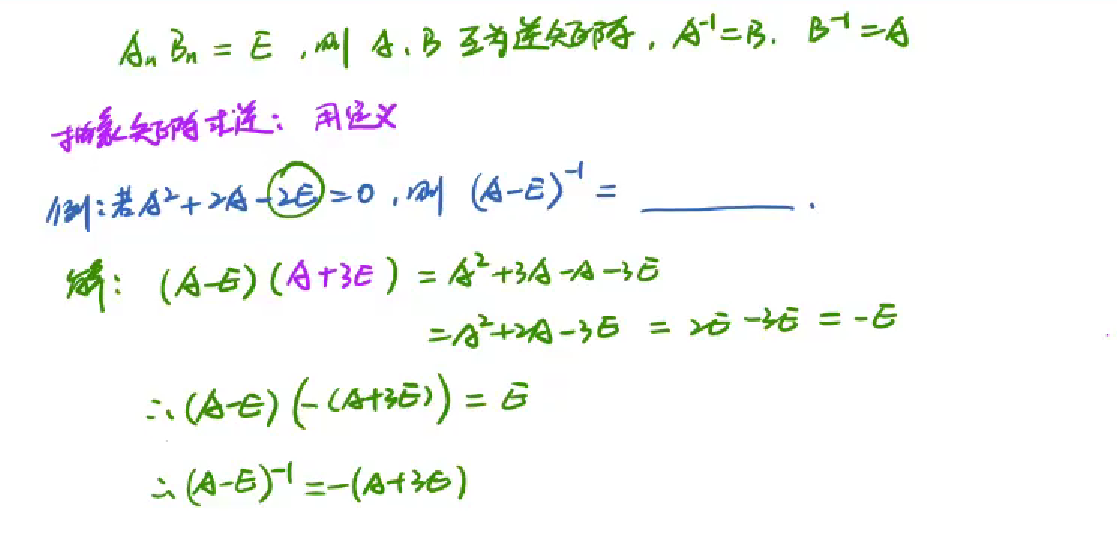 AₙBₙ = E，则 A、B 互为逆矩阵，A⁻¹=B. B⁻¹=A
抽象矩阵求逆：用定义
例：若A²+2A-2E=0，则 (A-E)⁻¹ = ________ .
解：(A-E)(A+3E) = A²+3A-A-3E
=A²+2A-3E = 2E-3E = -E
∴(A-E)(-(A+3E)) = E
∴(A-E)⁻¹=-(A+3E)